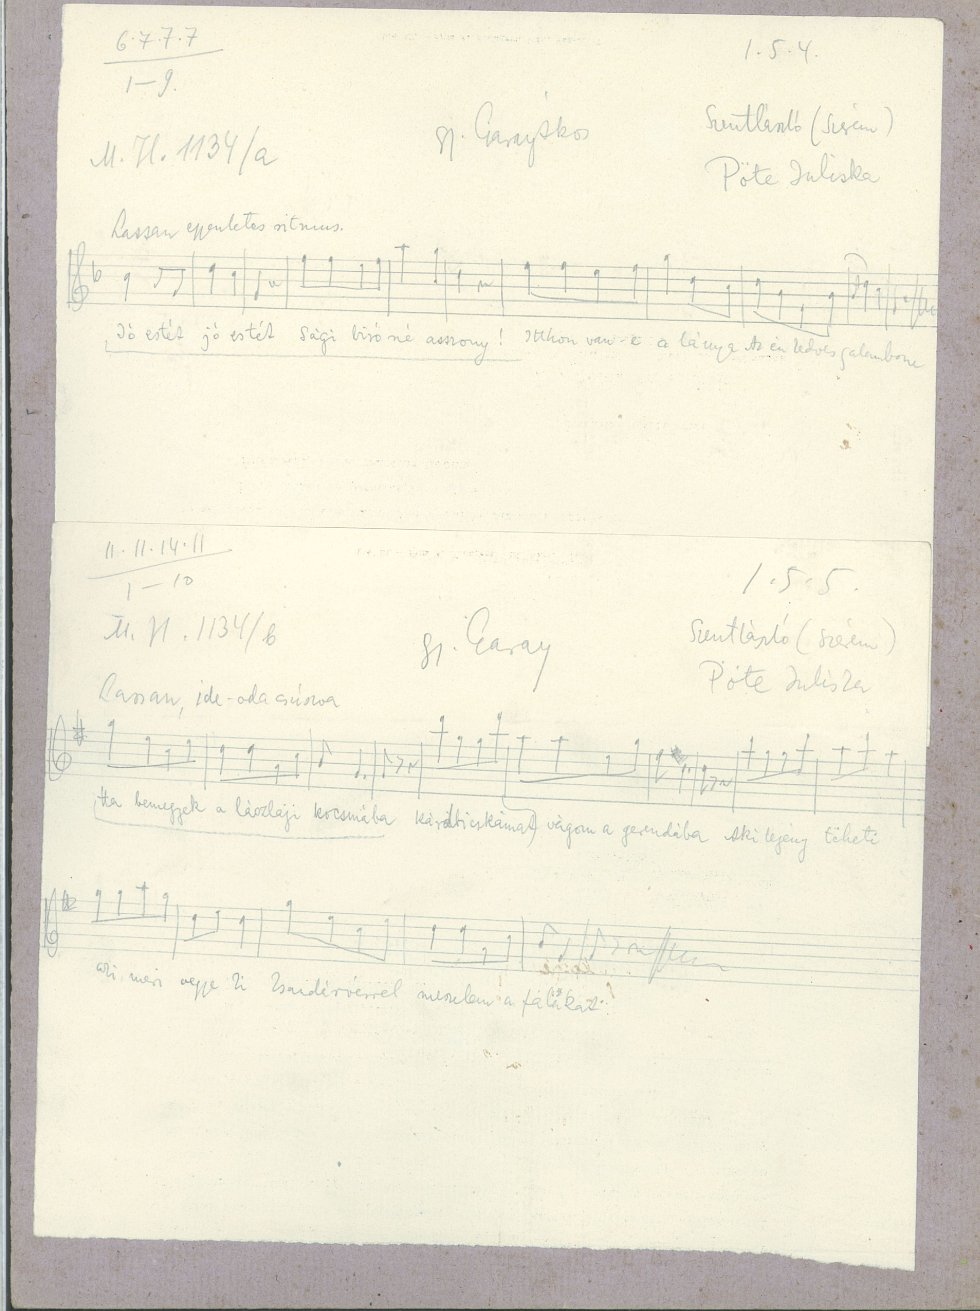 6.7.7.7
1–9.
1.5.4.
M. H. 1134/a
gj. Garay Ákos
Szentlászló (Szerém)
Pőte Juliska
Lassan egyenletes ritmus.
Jó estét jó estét Sági biróné asszony! Itthon van-e a lánya Az én kedves galambom
11.11.14.11
1–10
1.5.5.
M. H. 1134/b
gj. Garay
Szentlászló (Szerém)
Pőte Juliska
Lassan, ide-oda csúszva
Ha bemegyek a lászlaji kocsmába bicskámat vágom a gerendába Aki legény teheti
aki meri vegye ki Zsandárvérrel meszelem a falakat.